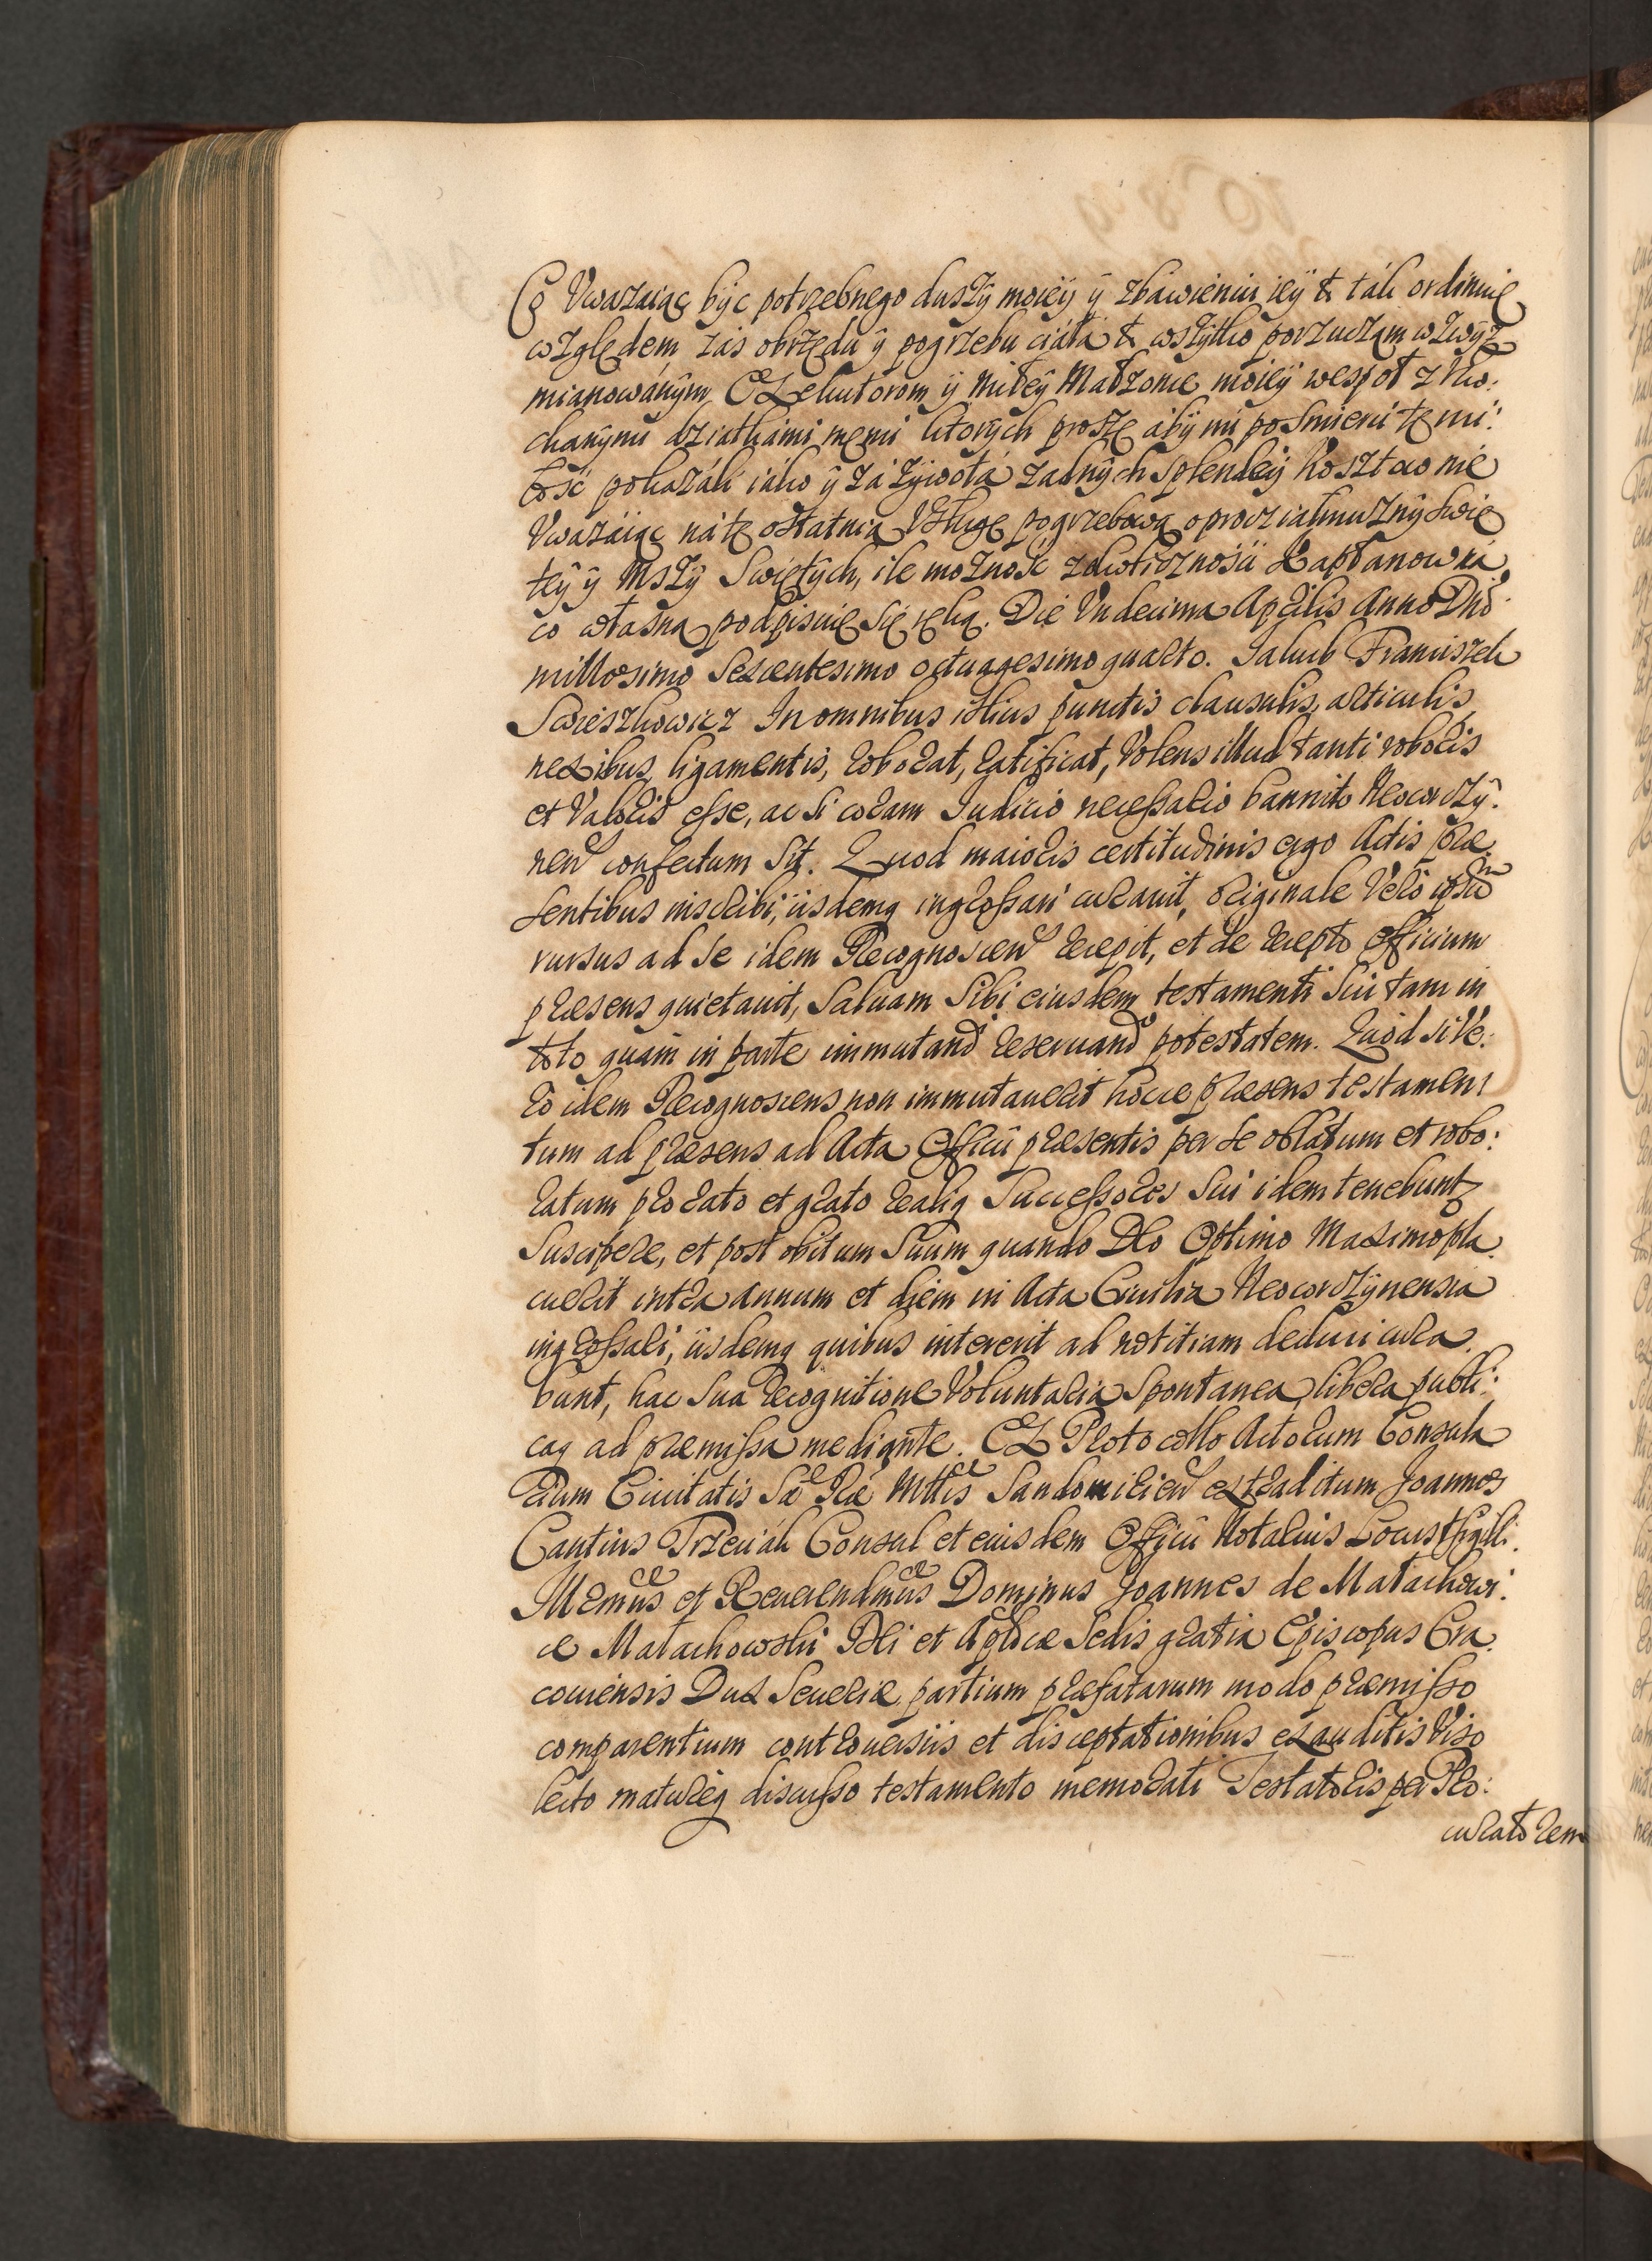 Co Uwazaiąc byc potrzebnego duszy moiey y zbawieniu iey to tak ordinuię
względem zas obrzędu y pogrzebu ciała to wszytko porzuczam wzwyż
mianowanym Exekutorom y Miłey Małzonce moiey wespoł z Ko:
chanymi dziatkami memi ktorych proszę aby mi po smierci tę mi:
łosc pokazali iako y za zywota zadnych splendey kosztow nie
Uwazaiąc na tę ostatnią Usługę pogrzebową oprocz iałmuzny Swię
tey y Mszy Swiętych, ile moznosc Kapłanow rę
co własną podpisuię się ręką. Die Undecima Aprilis Anno Dnō
millesimo Sexcentesimo octuagesimo quarto. Jakub Franciszek
Swieszkowicz In omnibus illius punctis clausulis, articulis,
nexibus, ligamentis, roborat, ratificat, Volens illud tanti roboris
et Valoris esse, ac si coram Iudicio necessario bannito Neocorczy:
nen confectum sit. Quod maioris certitudinis ergo Actis præ
sentibus inscribi, iisdemq ingrossari curavit, originale Vero ipsum
rursus ad se idem Recognoscen recepit, et de recepto Officium
præsens quietavit, Salvam Sibi eiusdem testamenti Sui tam in
toto quam in parte immutand reservand potestatem. Quod si Ve:
ro idem Recognoscens non immutaverit hocce præsens testamen
tum ad præsens ad Acta Officii præsentis per se oblatum et robo:
ratum pro rato et grato realiq Successores Sui idem tenebuntur
Suscipere, et post obitum Suum quando Deo Optimo Maximo pla
cuerit intra annum et diem in Acta Civilia Neocorczynensia
ingrossari, iisdemq quibus intererit ad notitiam deduci cura
bunt, hac Sua Recognitione Voluntaria Spontanea, libera publi:
caq ad præmissa mediante. Ex Protocollo Actorum Consula
rium Civitatis Sæ Ræ Mttis Sandomirien extraditum Joannes
Cantius Trzeciak Consul et eiusdem Officii Notarius Locus Sigilli.
Illrmus et Reverendmus Dominus Joannes de Małachowi:
ce Małachowski Dei et Aplicæ Sedis gratia Episcopus Cra
coviensis Dux Severiæ partium præfatarum modo præmisso
comparentium controversiis et disceptationibus exauditis Viso
lecto matureq discusso testamento memorati Testatoris per Pro:
curatorem